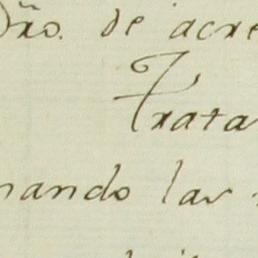 Dño. de acre
Trata
nando las